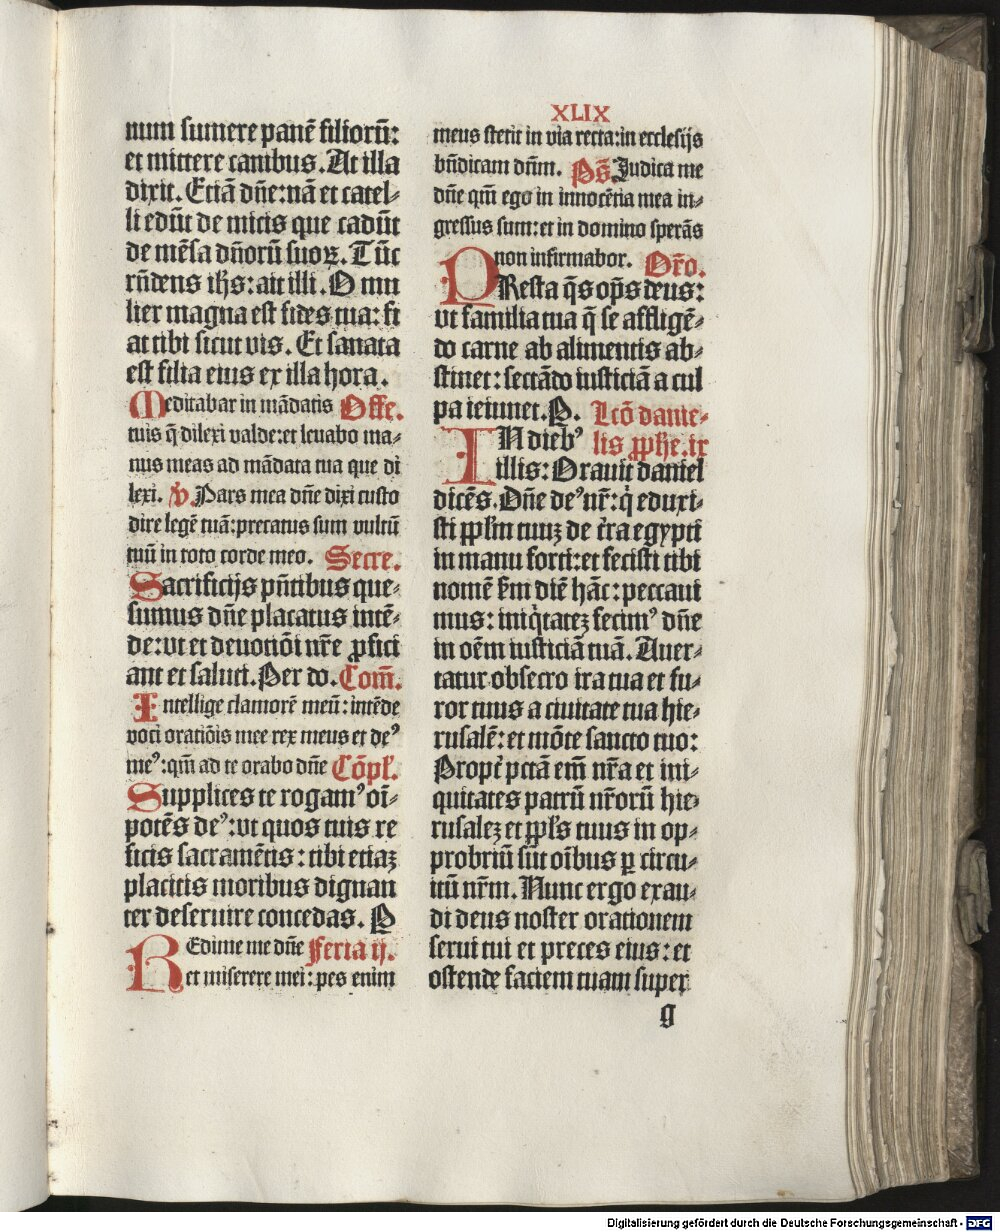 num sumere panē filiorū:
et mittere canibus. At illa
dixit. Eciā dn̄e: nā et catel⸗
li edūt de micis que cadūt
de mēsa dn̄orū suoꝝ. Tūc
rn̄dens ih̄s: ait illi. O mu
lier magna est fides tua: fi
at tibi sicut vis. Et sanata
est filia eius ex illa hora.
Meditabar in mādatis Offe.
tuis q̄ dilexi valde: et levabo ma⸗
nus meas ad mādata tua que di
lexi. v̄. Pars mea dn̄e dixi custo
dire legē tuā: precatus sum vultū
tuū in toto corde meo. Secre.
Sacrificijs pn̄tibus que⸗
sumus dn̄e placatus intē⸗
de: vt et deuotiōi nr̄e ꝓfici
ant et saluti. Per do. Com̄.
Intellige clamorē meū: intēde
voci oratiōis mee rex meus et deꝰ
meꝰ: qm̄ ad te orabo dn̄e Cōpl̄.
Supplices te rogamꝰ oī⸗
potēs deꝰ: vt quos tuis re
ficis sacramētis: tibi etiaꝫ
placitis moribus dignan
ter deseruire concedas. P
REdime me dn̄e Feria ij.
et miserere mei: pes enim
XLIX
meus stetit in via recta: in ecclesijs
bn̄dicam dn̄m. Ps̄. Judica me
dn̄e qm̄ ego in innocētia mea in⸗
gressus sum: et in domino sperās
non infirmabor. Or̄o.
PResta q̄s op̄s deus:
vt familia tua q̄ se affligē⸗
do carne ab alimentis ab⸗
stinet: sectādo iusticiā a cul
pa ieiunet. P. Lcō danie⸗
IN diebꝰ lis ꝓph̄e. ix
illis: Orauit daniel
dicēs. Dn̄e deꝰ nr̄: q̇ eduxi⸗
sti ppl̄m tuuꝫ de t̄ra egypti
in manu forti: et fecisti tibi
nomē s̄m diē hāc: peccaui
mus: iniq̇tateꝫ fecimꝰ dn̄e
in oēm iusticiā tuā. Auer⸗
tatur obsecro ira tua et fu⸗
ror tuus a ciuitate tua hie⸗
rusalē: et mōte sancto tuo:
Propt̄ pctā em̄ nr̄a et ini⸗
quitates patrū nr̄orū hie⸗
rusaleꝫ et ppl̄s tuus in op⸗
probriū sūt oībus ꝑ circu⸗
itū nr̄m. Nunc ergo exau⸗
di deus noster orationem
serui tui et preces eius: et
ostende faciem tuam super
g
Digitalisierung gefördert durch die Deutsche Forschungsgemeinschaft - DFG